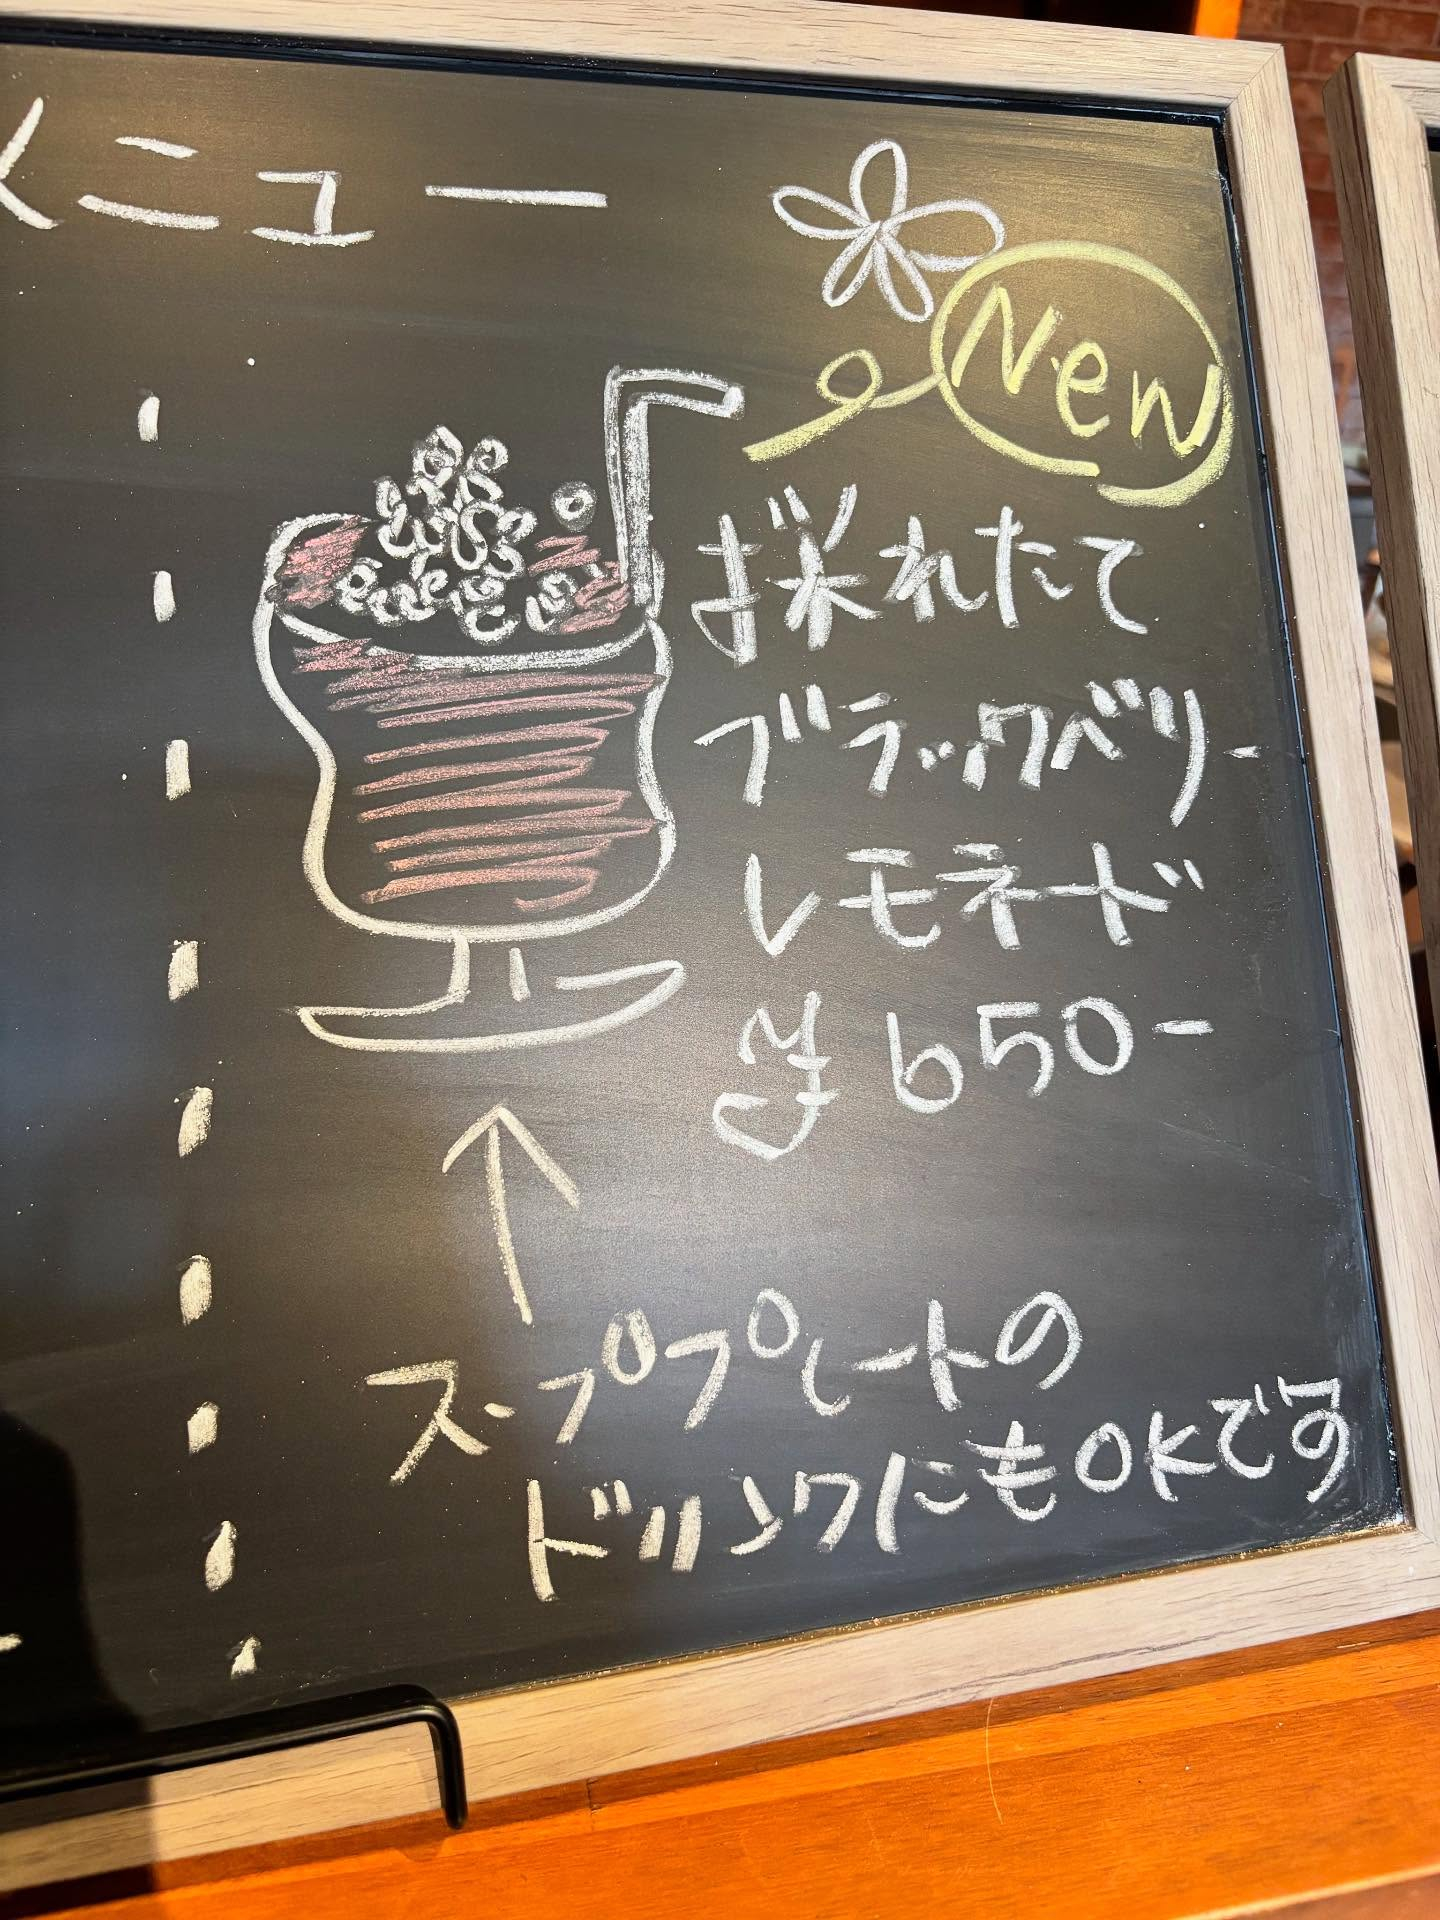 メニュー
New
採れたて
ブラックベリー
レモネード
¥650-
スーププレートの
ドリンクにもOKです